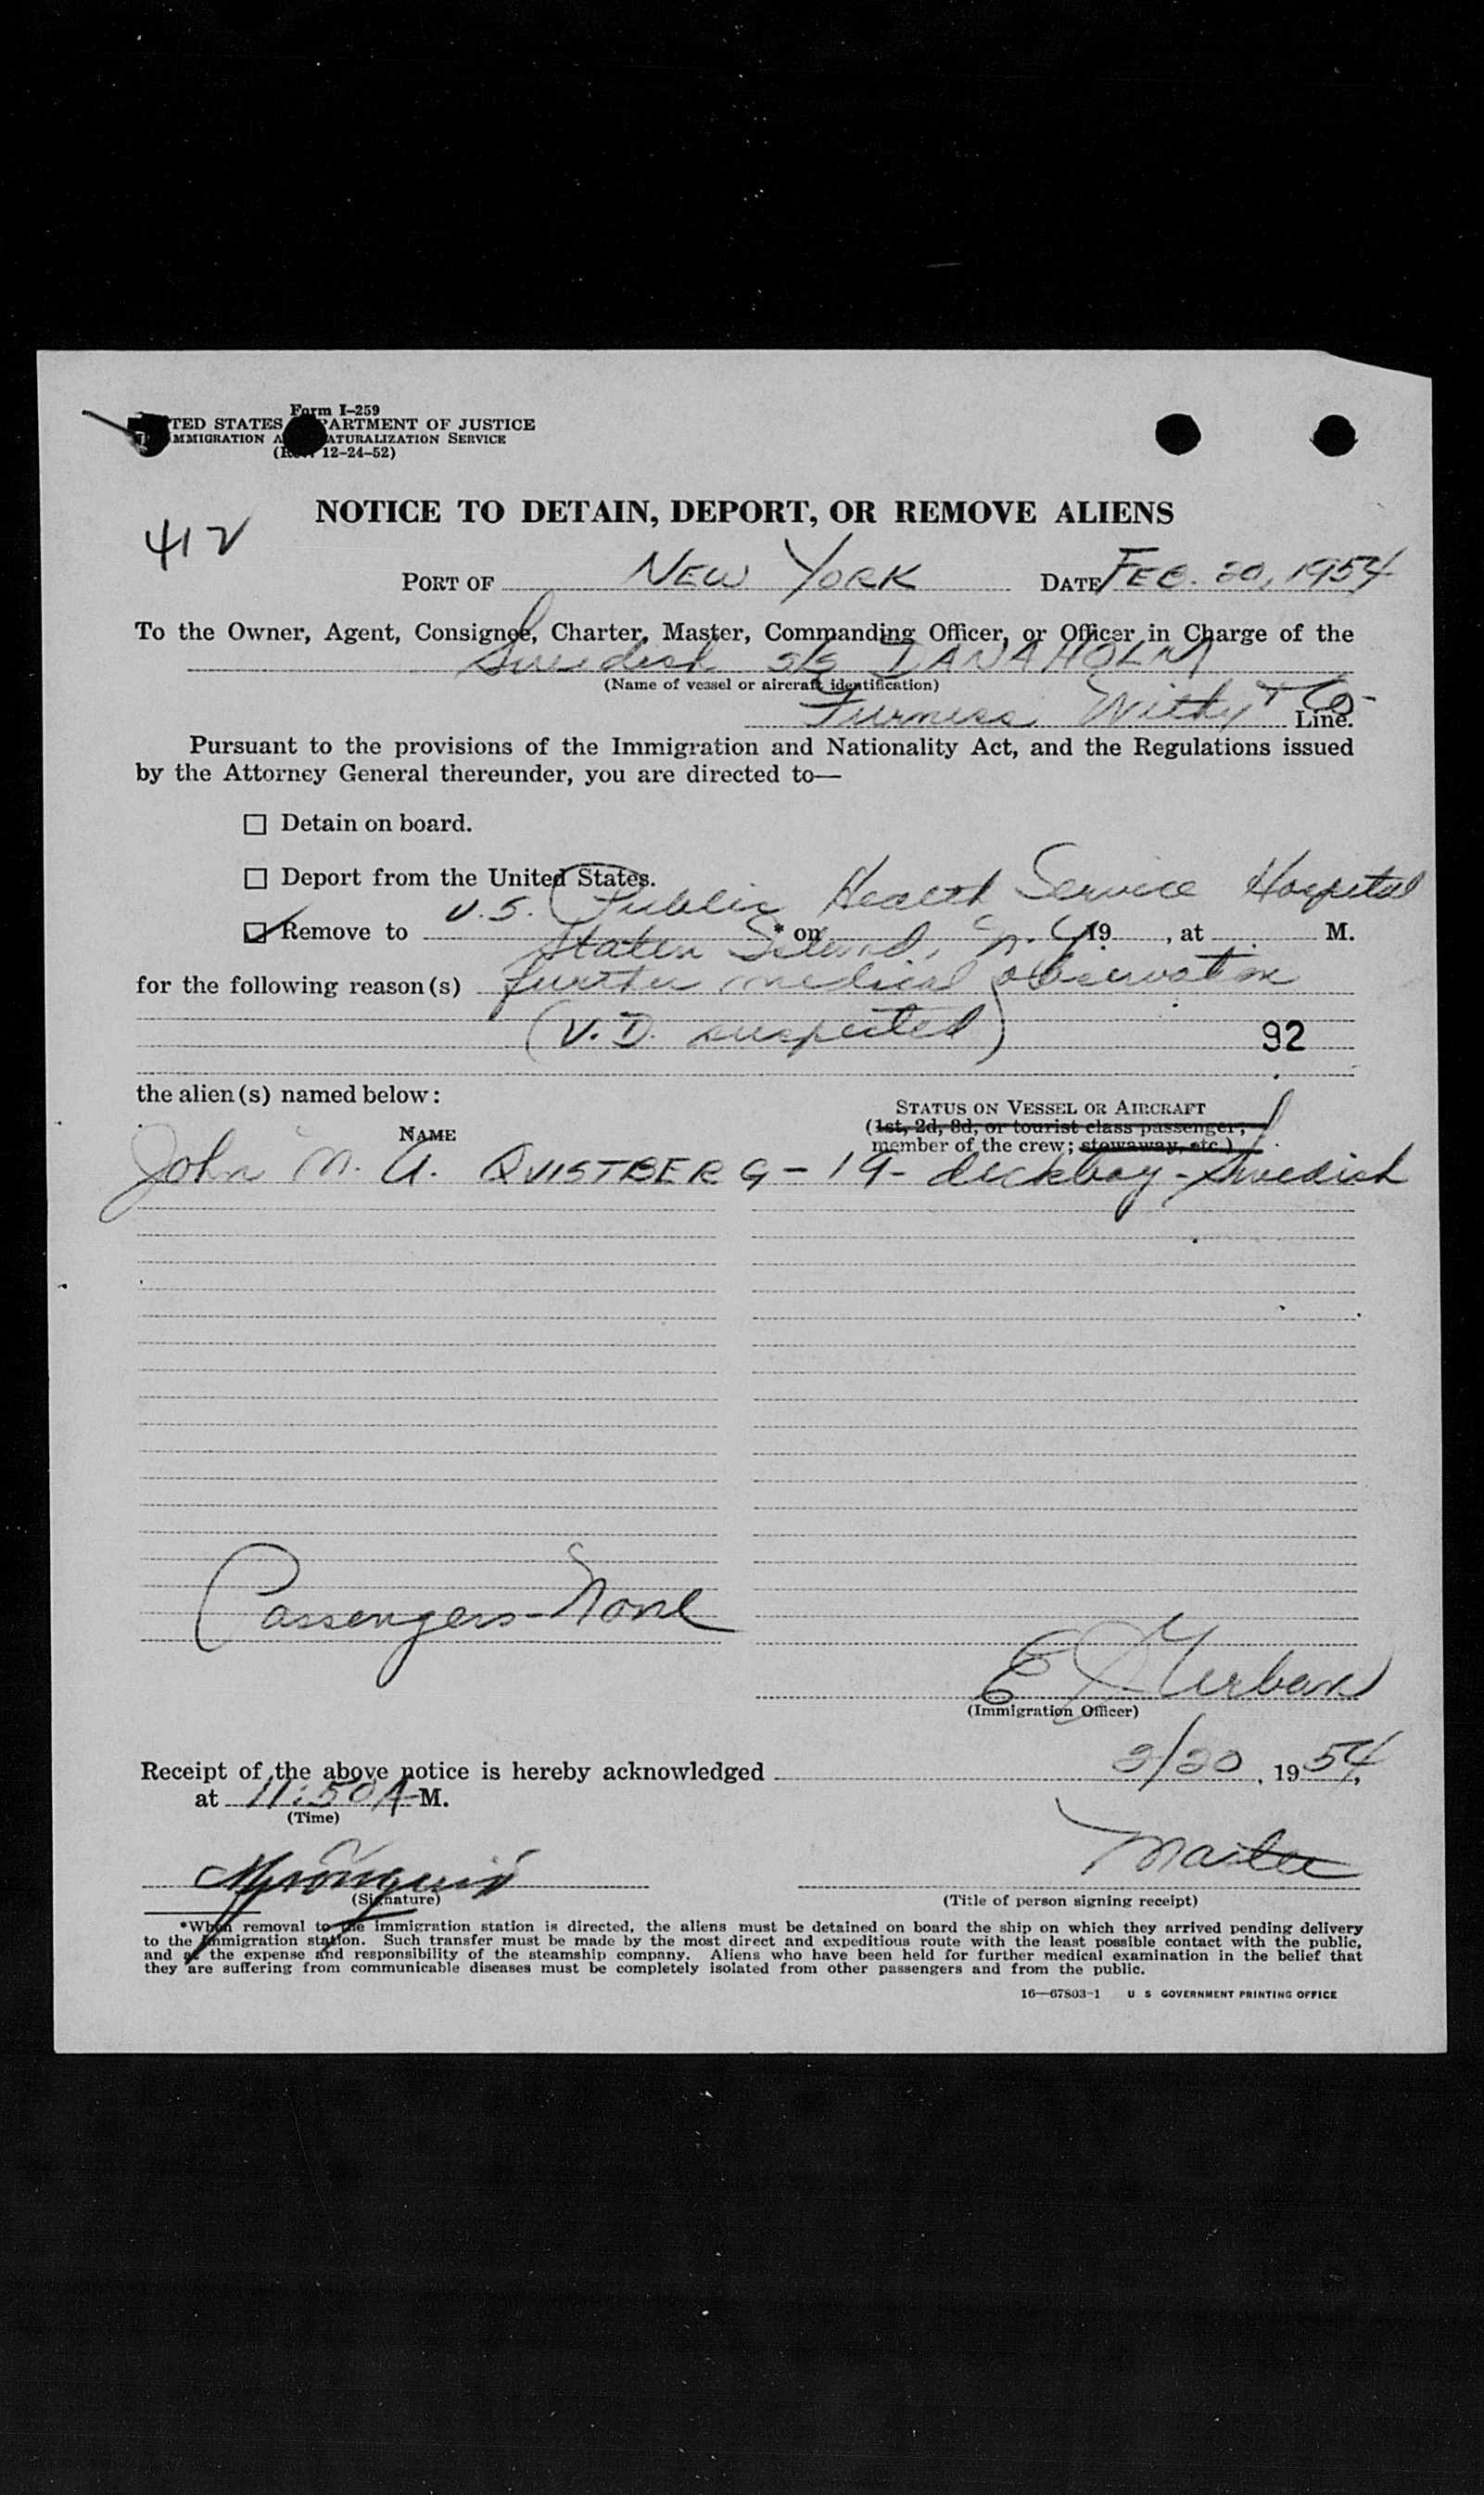 Form I-259
TED STATES PARTMENT OF JUSTICE
MMIGRATION A ATURALIZATION SERVICE
12-24-52)
NOTICE TO DETAIN, DEPORT, OR REMOVE ALIENS
412
PORT OF NEW YORK DATE FEB. 20, 1954
To the Owner, Agent, Consignee, Charter, Master, Commanding Officer, or Officer in Charge of the
Swedish s/s DANAHOLM
(Name of vessel or aircraft identification)
Furness Withy & Co- Line.
Pursuant to the provisions of the Immigration and Nationality Act, and the Regulations issued
by the Attorney General thereunder, you are directed to—
☐ Detain on board.
☐ Deport from the United States.
U.S. Public Health Service Hospital
☑ Remove to * on 19 , at M.
Staten Island, N.Y.
for the following reason(s) further medical observation
(V.D. suspected)
92
the alien(s) named below:
STATUS ON VESSEL OR AIRCRAFT
(1st, 2d, 3d, or tourist class passenger;
NAME
member of the crew; stowaway, etc.)
John M. A. QVISTBERG - 19 - deckboy - Swedish
Passengers - None
E Urban
(Immigration Officer)
Receipt of the above notice is hereby acknowledged 2/20, 1954,
at 11:50 A M.
(Time)
Master
(Signature) (Title of person signing receipt)
*When removal to the immigration station is directed, the aliens must be detained on board the ship on which they arrived pending delivery
to the immigration station. Such transfer must be made by the most direct and expeditious route with the least possible contact with the public,
and at the expense and responsibility of the steamship company. Aliens who have been held for further medical examination in the belief that
they are suffering from communicable diseases must be completely isolated from other passengers and from the public.
16—67803-1 U S GOVERNMENT PRINTING OFFICE